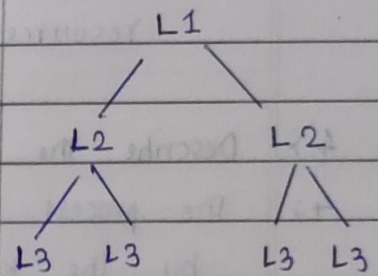 L1
L2 L2
L3 L3 L3 L3